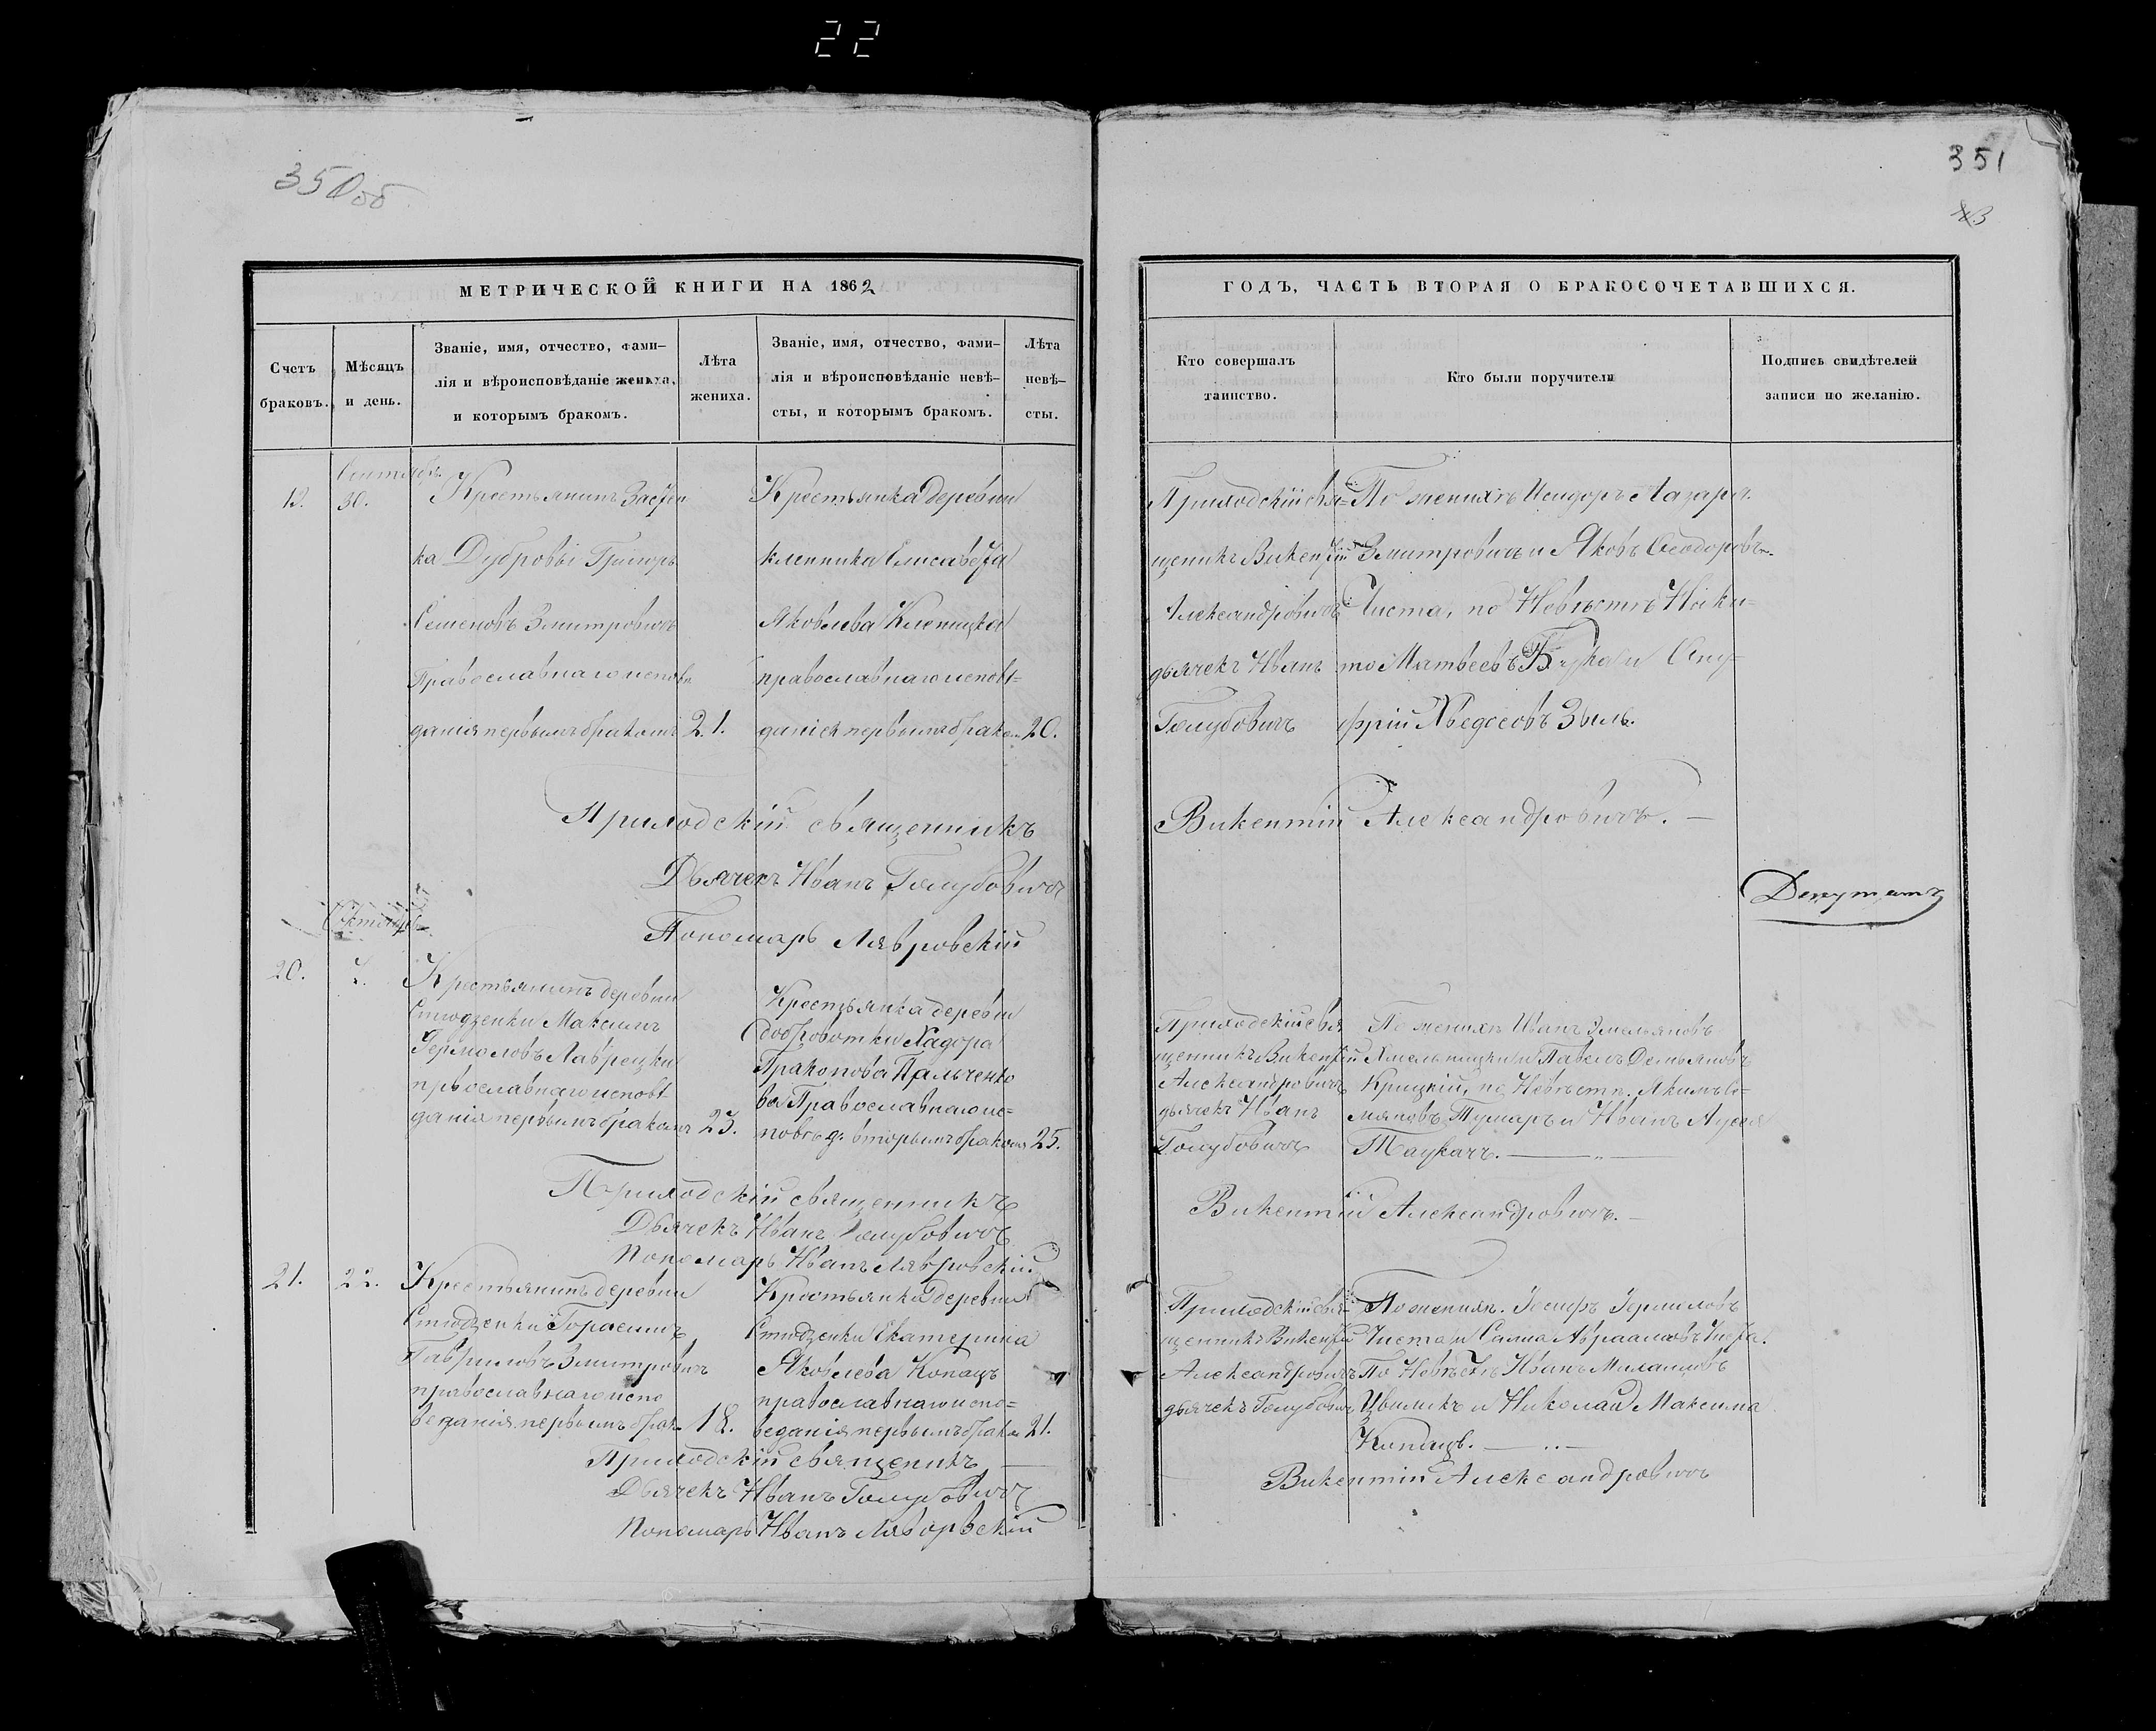 22
350об
351
МЕТРИЧЕСКОЙ КНИГИ НА 1862
ГОДЪ, ЧАСТЬ ВТОРАЯ О БРАКОСОЧЕТАВШИХСЯ.
Счетъ браковъ.
Мѣсяцъ и день.
Званіе, имя, отчество, фами-
лія и вѣроисповѣданіе жениха,
и которымъ бракомъ.
Лѣта
жениха.
Званіе, имя, отчество, фами-
лія и вѣроисповѣданіе невѣ-
сты, и которымъ бракомъ.
Лѣта
невѣ-
сты.
Кто совершалъ
таинство.
Кто были поручители
Подпись свидѣтелей
записи по желанію.
Сентябрь
30.
Крестьянинъ Застен
ка Дубровы Григоръ
Семеновъ Змитровичъ
Православнаго исповѣ
данія первымъ бракомъ 21.
Крестьянка деревни
Клетника Елисавета
Яковлева Клетицка
православнаго исповѣ=
данія первымъ браком 20.
Приходскій свя=
щеникъ Викентій
Александровичъ
дьячекъ Иванъ
Голубовичъ
По женихѣ Исидоръ Лазаря
Змитровичъ и Яковъ Ѳеодоровъ
Чиста, по Невѣстѣ Ники=
то Матвеевъ Бурка и Ону=
фрій Хведосовъ Зыль.
Приходскій священникъ
Викентій Александровичъ. —
Дьячекъ Иванъ Голубовичъ
Депутатъ
Пономарь Лявровскій
Октябрь
20.
Крестьянинъ деревни
Стюдзенки Максимъ
Ярмоловъ Лаврецки
првославнаго исповѣ
данія первымъ бракомъ 23.
Крестьянка деревни
Хадора
Пракопова Пальченко
ва Православнаго ис=
повѣд. вторымъ бракомъ 25.
Приходскій свя
щенникъ Викентій
Александровичъ
дьячекъ Иванъ
Голубовичъ
По женихѣ Иванъ Эмельяновъ
Хмельницки и Павелъ Демьяновъ
Крицкій, по Невѣстѣ Якимъ
Тумаръ и Иванъ
Ткачъ.
Приходскій священникъ
Викентій Александровичъ. —
Дьячекъ Иванъ Голубовичъ
Пономарь Иванъ Лявровскій
21.
22.
Крестьянинъ деревни
Стюдзенки Гарасимъ
Гавриловъ Змитровичъ
православнаго испо
веданія первымъ брак 18.
Крестьянка деревни
Стюдзенки Екатерина
Яковлева Копацъ
православнаго испо=
веданія первымъ браком 21.
Приходскій свя=
щенникъ Викентій
Александровичъ
дьячекъ Голубович
По женихѣ. Іосифъ Іермиловъ
Чиста и Авраамовъ Чиста.
По Невѣстѣ Иванъ
Цвиликъ и Николай Максима
Копацъ.
Приходскій священикъ —
Викентій Александровичъ
Дьячекъ Иванъ Голубовичъ
Пономарь Иванъ Лявровскій